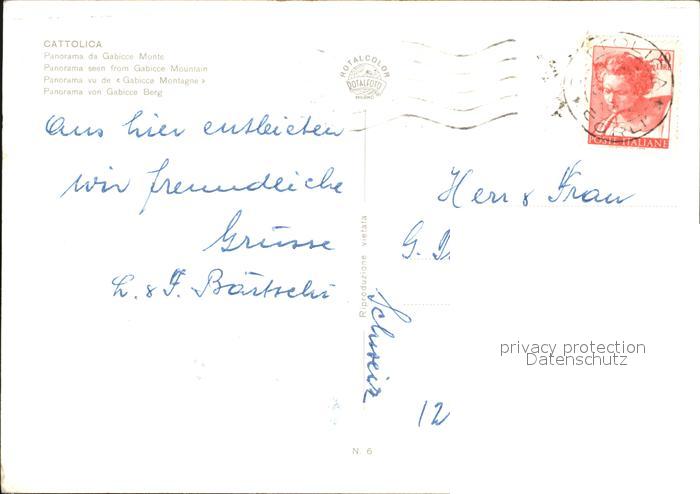 CATTOLICA
Panorama da Gabicce Monte
Panorama seen from Gabicce Mountain
Panorama vu de « Gabicce Montagne »
Panorama von Gabicce Berg
ROTALCOLOR
ROTALFOTO
MILANO
POSTE ITALIANE
Aus hier entbieten
wir freundliche
Grüsse
L. & F. Bärtschi
Herr & Frau
G.
Schweiz
12
Riproduzione vietata
N. 6
privacy protection
Datenschutz